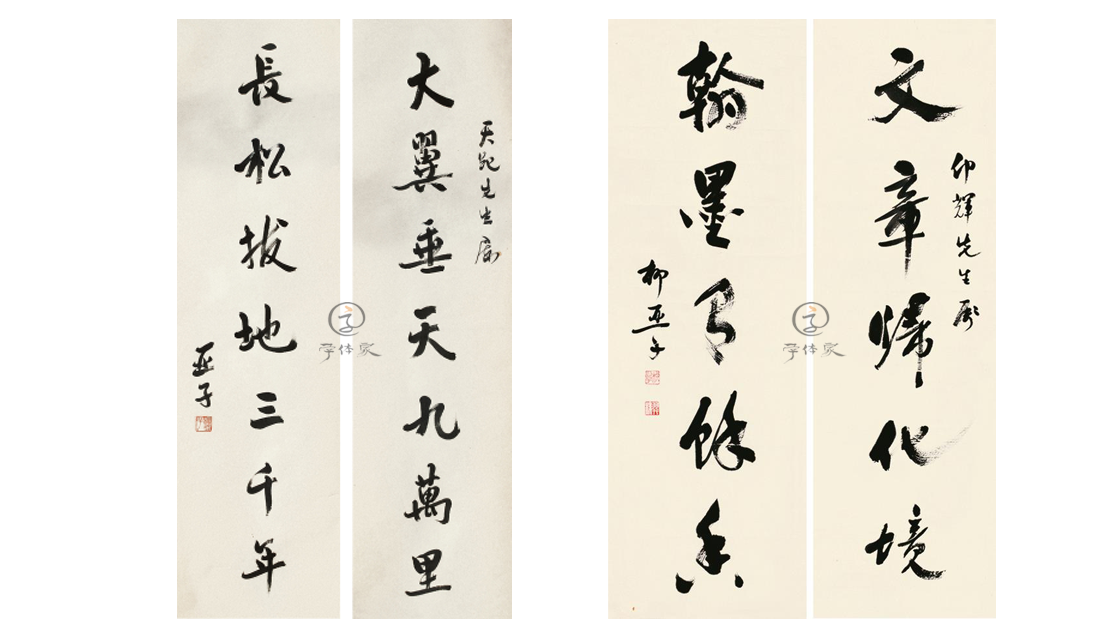 文章歸化境
仰輝先生
翰墨有餘香
柳亞子
大翼垂天九萬里
先生屬
長松拔地三千年
亞子
字体家
字体家